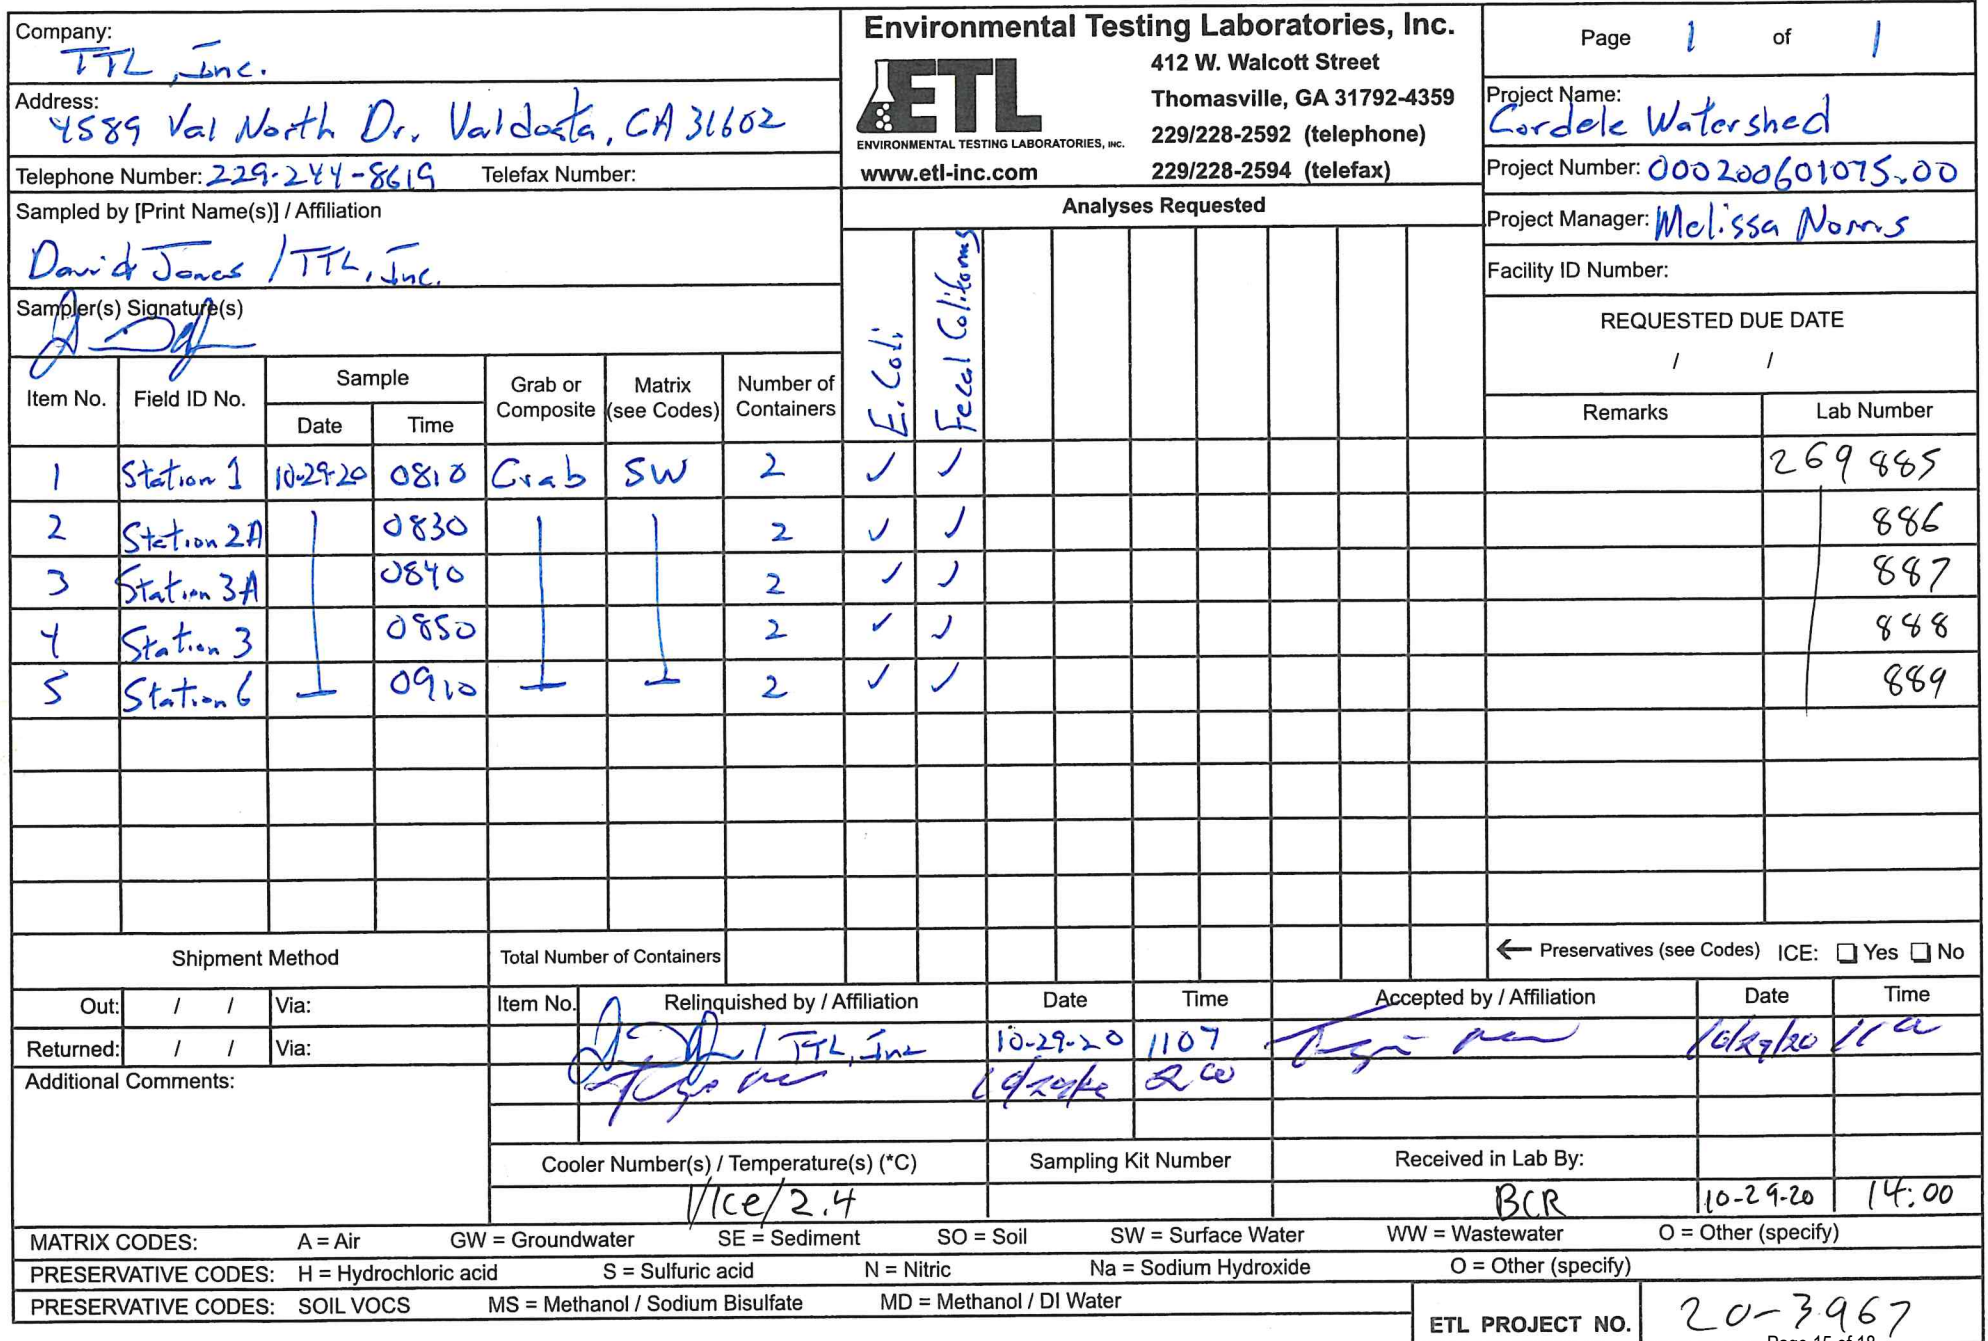 Company:
TTL, Inc.
Address:
4589 Val North Dr. Valdosta, GA 31602
Telephone Number: 229-244-8619 Telefax Number:
Sampled by [Print Name(s)] / Affiliation
David Jones / TTL, Inc.
Sampler(s) Signature(s)
Environmental Testing Laboratories, Inc.
ETL
ENVIRONMENTAL TESTING LABORATORIES, INC.
www.etl-inc.com
412 W. Walcott Street
Thomasville, GA 31792-4359
229/228-2592 (telephone)
229/228-2594 (telefax)
Page 1 of 1
Project Name:
Cordele Watershed
Project Number: 000200601075.00
Project Manager: Melissa Norris
Facility ID Number:
REQUESTED DUE DATE
/ /
Analyses Requested
E. Coli
Fecal Coliforms
Item No. Field ID No. Sample Date Time Grab or Composite Matrix (see Codes) Number of Containers Remarks Lab Number
1 Station 1 10-29-20 0810 Grab SW 2 ✓ ✓ 269885
2 Station 2A 0830 2 ✓ ✓ 886
3 Station 3A 0840 2 ✓ ✓ 887
4 Station 3 0850 2 ✓ ✓ 888
5 Station 6 0910 2 ✓ ✓ 889
Shipment Method Total Number of Containers ← Preservatives (see Codes) ICE: ☐ Yes ☐ No
Out: / / Via: Item No. Relinquished by / Affiliation Date Time Accepted by / Affiliation Date Time
Returned: / / Via: / TTL, Inc 10-29-20 1107 10/29/20
Additional Comments:
Cooler Number(s) / Temperature(s) (*C) Sampling Kit Number Received in Lab By:
1/Ice/2.4 BCR 10-29-20 14:00
MATRIX CODES: A = Air GW = Groundwater SE = Sediment SO = Soil SW = Surface Water WW = Wastewater O = Other (specify)
PRESERVATIVE CODES: H = Hydrochloric acid S = Sulfuric acid N = Nitric Na = Sodium Hydroxide O = Other (specify)
PRESERVATIVE CODES: SOIL VOCS MS = Methanol / Sodium Bisulfate MD = Methanol / DI Water
ETL PROJECT NO. 20-3967